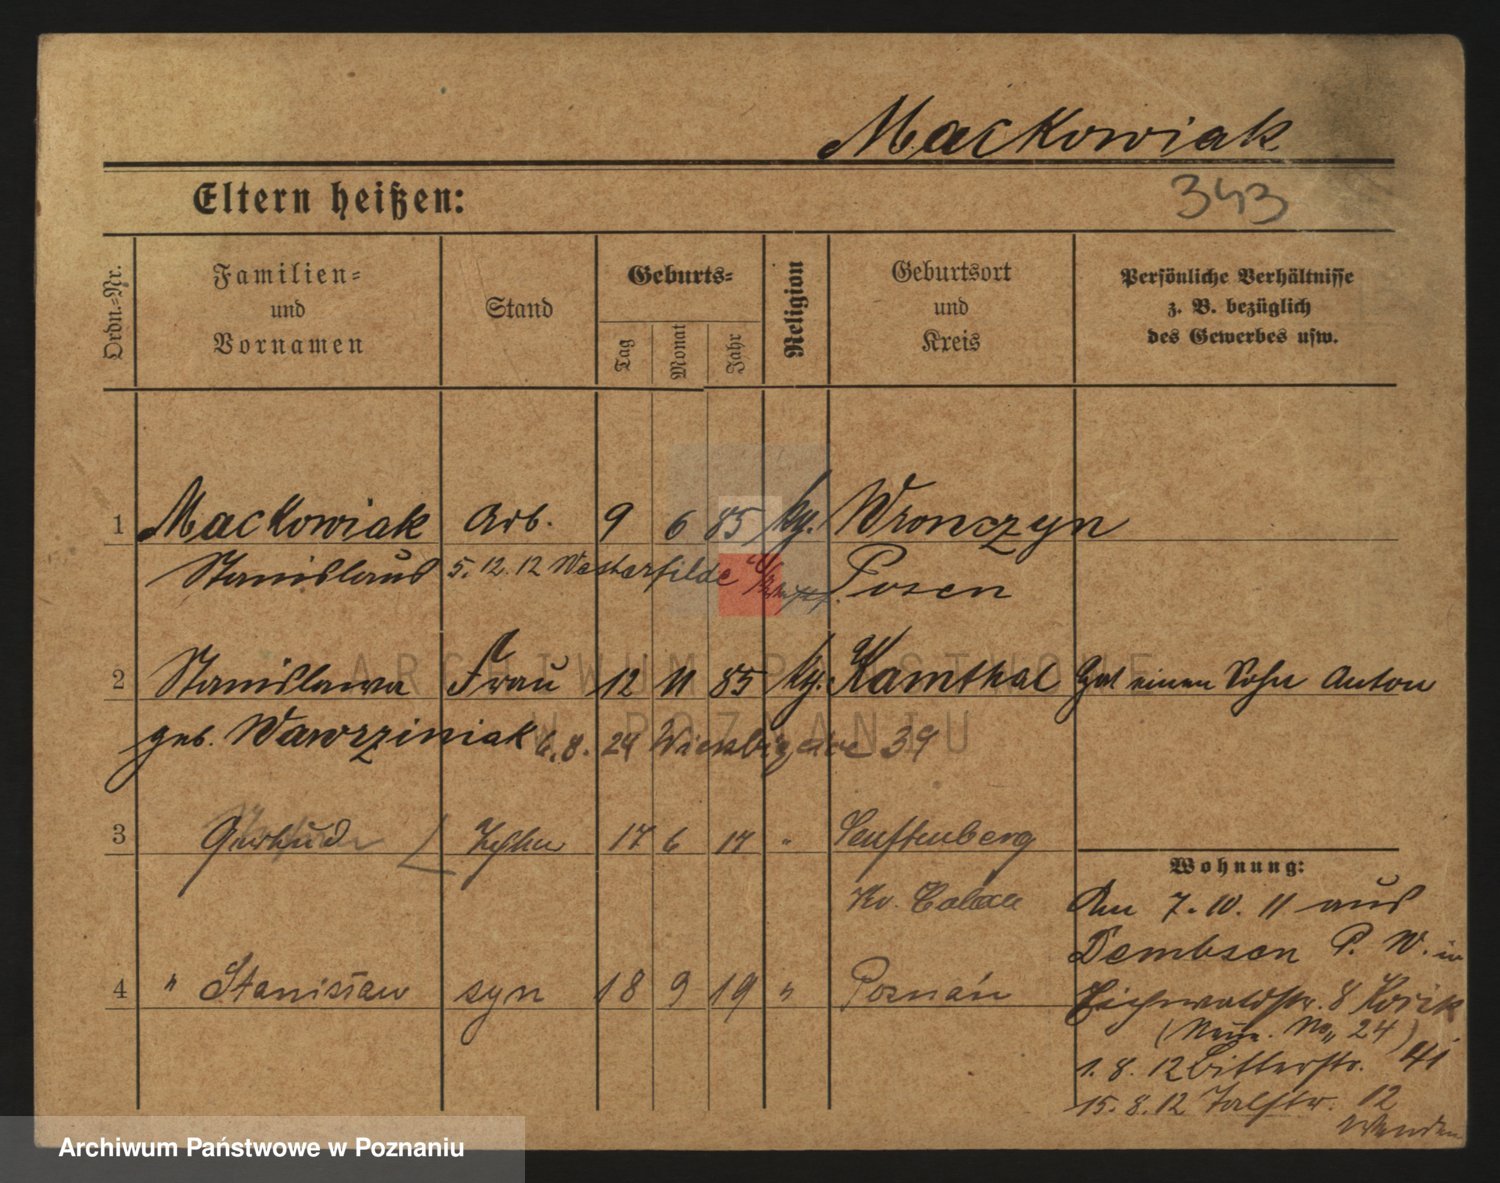 Mackowiak
343
Eltern heißen:
Ordn.-Nr.
Familien-
und
Vornamen
Stand
Geburts-
Tag
Monat
Jahr
Religion
Geburtsort
und
Kreis
Persönliche Verhältnisse
z. B. bezüglich
des Gewerbes usw.
1 Mackowiak Arb. 9 6 85 kg. Wronczyn
Stanislaus 5.12.12 Westerfilde Posen
2 Stanislawa Frau 12 11 85 kg. Kamthal Hat einen Sohn Anton
geb. Wawrziniak 6.8.24 39
3 Gertrud 17 6 17 " Senftenberg
Wohnung:
Kr. Calau Am 7.10.11 aus
Dembsen P. W. in
4 " Stanisław syn 18 9 19 " Poznań
Eichwaldstr. 8
(Neue No 24)
1.8.12 Bitterstr. 41
15.8.12 Talstr. 12
Wenden
ARCHIWUM PAŃSTWOWE
W POZNANIU
Archiwum Państwowe w Poznaniu